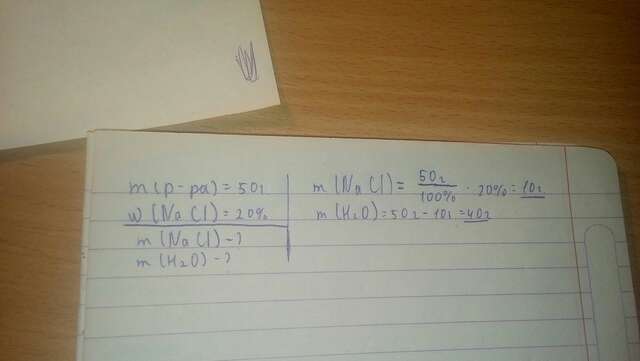 m (р-ра) = 50г
w (NaCl) = 20%
m (NaCl) - ?
m (H2O) - ?
m (NaCl) = 50г / 100% · 20% = 10г
m (H2O) = 50г - 10г = 40г